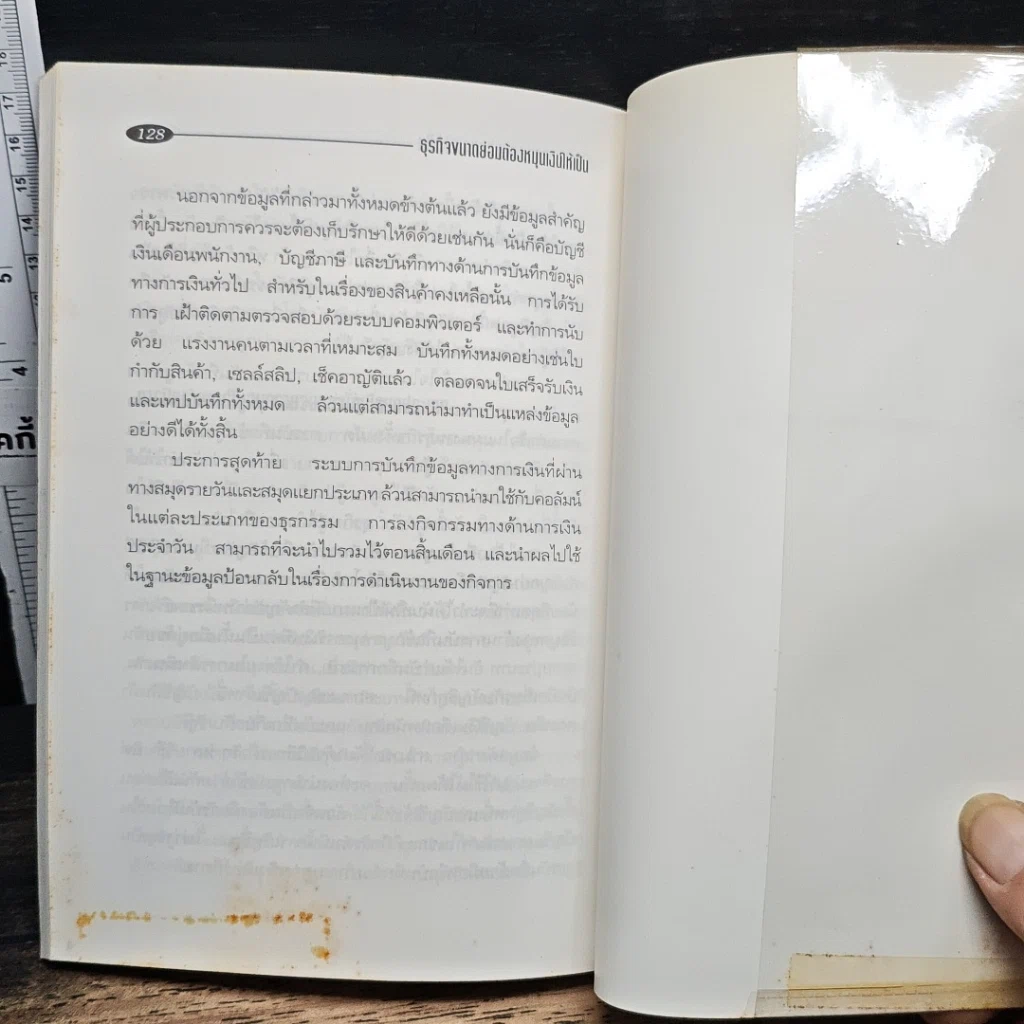 128
ธุรกิจขนาดย่อมต้องหมุนเงินให้เป็น
นอกจากข้อมูลที่กล่าวมาทั้งหมดข้างต้นแล้ว ยังมีข้อมูลสำคัญ
ที่ผู้ประกอบการควรจะต้องเก็บรักษาให้ดีด้วยเช่นกัน นั่นก็คือบัญชี
เงินเดือนพนักงาน, บัญชีภาษี และบันทึกทางด้านการบันทึกข้อมูล
ทางการเงินทั่วไป สำหรับในเรื่องของสินค้าคงเหลือนั้น การได้รับ
การ เฝ้าติดตามตรวจสอบด้วยระบบคอมพิวเตอร์ และทำการนับ
ด้วย แรงงานคนตามเวลาที่เหมาะสม บันทึกทั้งหมดอย่างเช่นใบ
กำกับสินค้า, เซลล์สลิป, เช็คอาญัติแล้ว ตลอดจนใบเสร็จรับเงิน
และเทปบันทึกทั้งหมด ล้วนแต่สามารถนำมาทำเป็นแหล่งข้อมูล
อย่างดีได้ทั้งสิ้น
ประการสุดท้าย ระบบการบันทึกข้อมูลทางการเงินที่ผ่าน
ทางสมุดรายวันและสมุดแยกประเภท ล้วนสามารถนำมาใช้กับคอลัมน์
ในแต่ละประเภทของธุรกรรม การลงกิจกรรมทางด้านการเงิน
ประจำวัน สามารถที่จะนำไปรวมไว้ตอนสิ้นเดือน และนำผลไปใช้
ในฐานะข้อมูลป้อนกลับในเรื่องการดำเนินงานของกิจการ
18
17
16
15
14
13
5
4